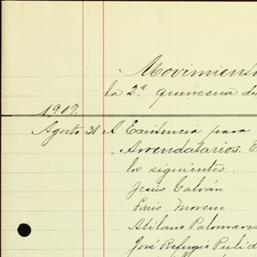 Movimiento
la 2ª quincena de
1909
Agosto 31 A Existencia para
Arrendatarios. E
los siguientes:
Jesús Galván
Luis Moreno
Atilano Palomares
José Refugio Pulid